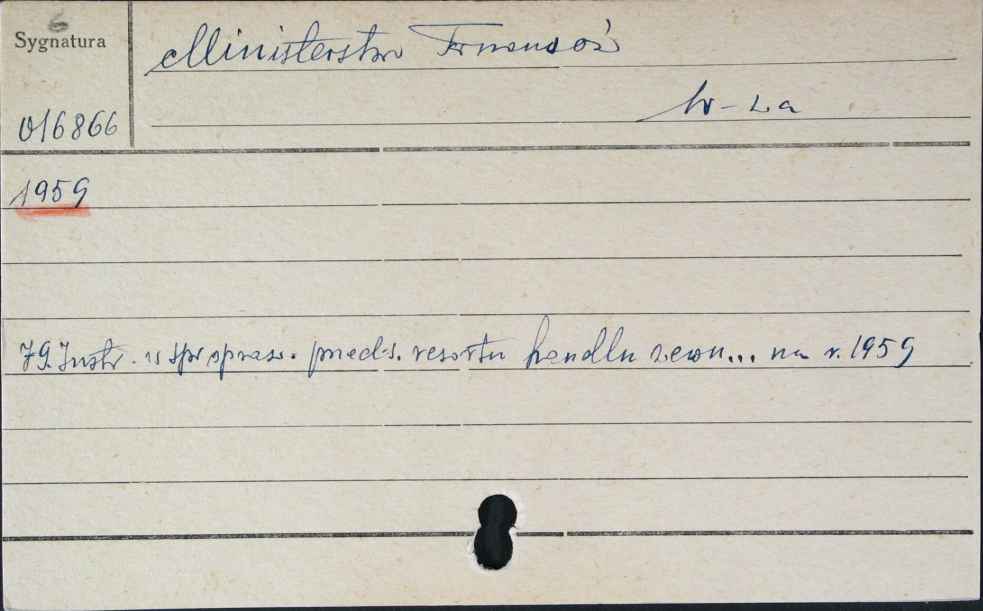 6
Sygnatura
Ministerstwo Finansów
W-wa
016866
1959
79. Instr. w spr. spraw. przeds. resortu handlu zewn... na r. 1959